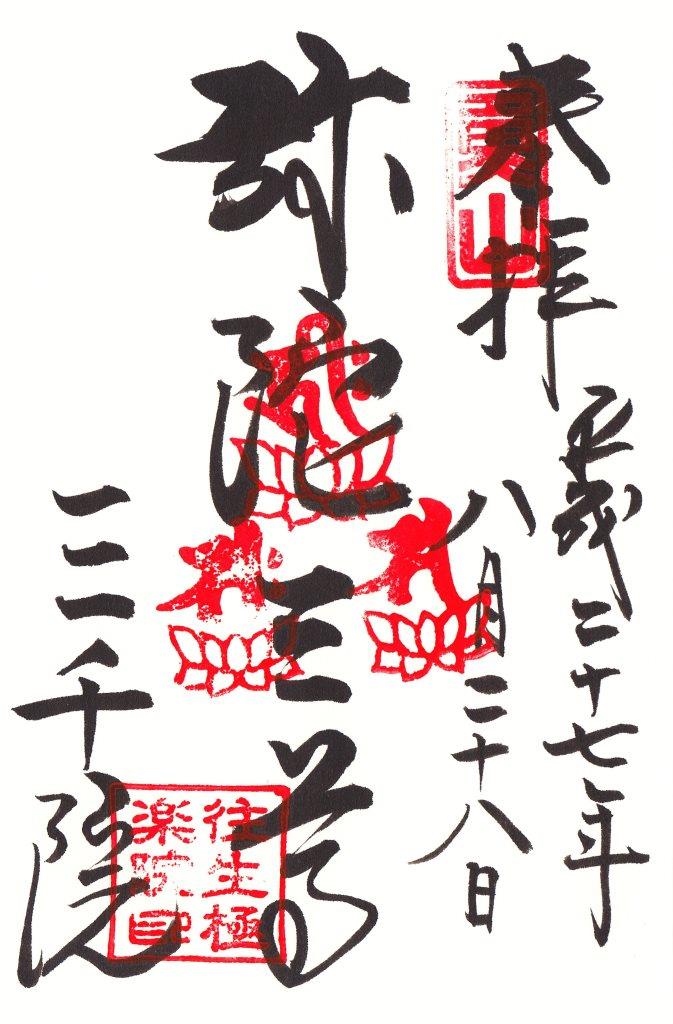 奉拝
平成二十七年
八月二十八日
弥陀三尊
三千院
往生極
楽院印